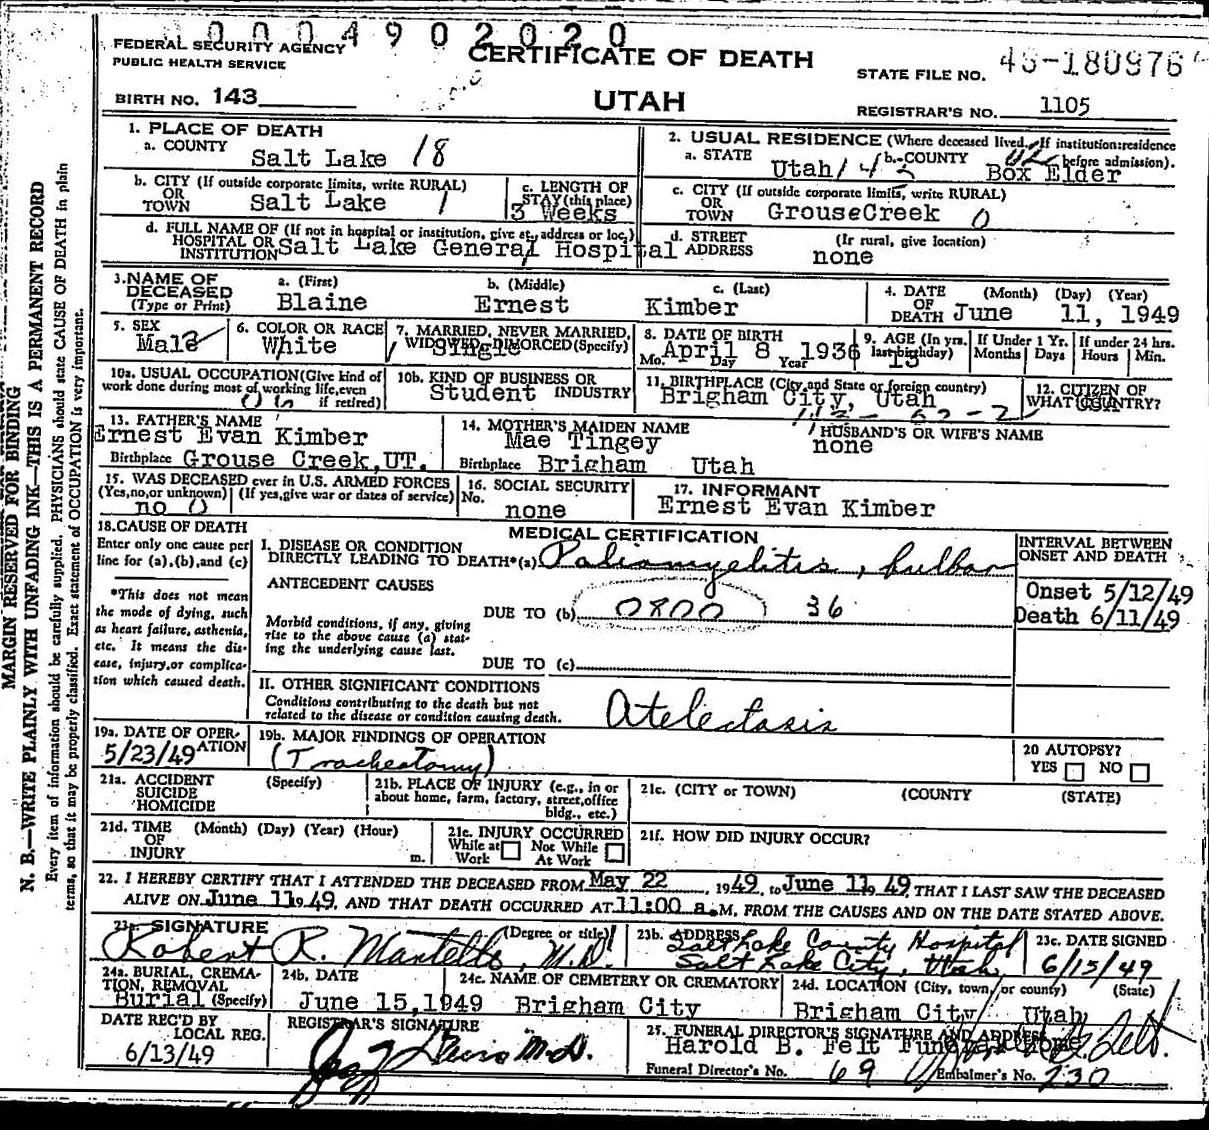 0004902020
FEDERAL SECURITY AGENCY
PUBLIC HEALTH SERVICE
CERTIFICATE OF DEATH
STATE FILE NO.
BIRTH NO. 143
UTAH
REGISTRAR'S NO. 1105
1. PLACE OF DEATH
a. COUNTY
Salt Lake 18
2. USUAL RESIDENCE (Where deceased lived. If institution:residence before admission).
a. STATE Utah
b. COUNTY Box Elder
b. CITY (If outside corporate limits, write RURAL)
OR
TOWN Salt Lake 1
c. LENGTH OF
STAY (this place)
3 Weeks
c. CITY (If outside corporate limits, write RURAL)
OR
TOWN GrouseCreek 0
d. FULL NAME OF (If not in hospital or institution, give st. address or loc.)
HOSPITAL OR
INSTITUTION Salt Lake General Hospital
d. STREET
ADDRESS
(Ir rural, give location)
none
3. NAME OF
DECEASED
(Type or Print)
a. (First)
Blaine
b. (Middle)
Ernest
c. (Last)
Kimber
4. DATE
OF
DEATH
(Month) (Day) (Year)
June 11, 1949
5. SEX
Male
6. COLOR OR RACE
White
7. MARRIED, NEVER MARRIED,
WIDOWED, DIVORCED (Specify)
Single
8. DATE OF BIRTH
April 8 1936
Mo. Day Year
9. AGE (In yrs.
last birthday)
13
If Under 1 Yr.
Months Days
If under 24 hrs.
Hours Min.
10a. USUAL OCCUPATION (Give kind of
work done during most of working life, even
if retired)
10b. KIND OF BUSINESS OR
INDUSTRY
Student
11. BIRTHPLACE (City and State or foreign country)
Brigham City, Utah
12. CITIZEN OF
WHAT COUNTRY?
13. FATHER'S NAME
Ernest Evan Kimber
Birthplace Grouse Creek,UT.
14. MOTHER'S MAIDEN NAME
Mae Tingey
Birthplace Brigham Utah
HUSBAND'S OR WIFE'S NAME
none
15. WAS DECEASED ever in U.S. ARMED FORCES
(Yes,no,or unknown) (If yes,give war or dates of service)
no 0
16. SOCIAL SECURITY
No.
none
17. INFORMANT
Ernest Evan Kimber
18. CAUSE OF DEATH
Enter only one cause per
line for (a),(b),and (c)
*This does not mean
the mode of dying, such
as heart failure, asthenia,
etc. It means the dis-
ease, injury,or complica-
tion which caused death.
MEDICAL CERTIFICATION
I. DISEASE OR CONDITION
DIRECTLY LEADING TO DEATH*(a) Poliomyelitis, bulbar
ANTECEDENT CAUSES
DUE TO (b) 0800 36
Morbid conditions, if any, giving
rise to the above cause (a) stat-
ing the underlying cause last.
DUE TO (c)
INTERVAL BETWEEN
ONSET AND DEATH
Onset 5/12/49
Death 6/11/49
II. OTHER SIGNIFICANT CONDITIONS
Conditions contributing to the death but not
related to the disease or condition causing death.
Atelectasis
19a. DATE OF OPER-
ATION
5/23/49
19b. MAJOR FINDINGS OF OPERATION
(Tracheotomy)
20 AUTOPSY?
YES NO
21a. ACCIDENT
SUICIDE
HOMICIDE
(Specify)
21b. PLACE OF INJURY (e.g., in or
about home, farm, factory, street,office
bldg., etc.)
21c. (CITY or TOWN) (COUNTY) (STATE)
21d. TIME
OF
INJURY
(Month) (Day) (Year) (Hour)
m.
21e. INJURY OCCURRED
While at Work
Not While At Work
21f. HOW DID INJURY OCCUR?
22. I HEREBY CERTIFY THAT I ATTENDED THE DECEASED FROM May 22, 1949, to June 11 19 49, THAT I LAST SAW THE DECEASED
ALIVE ON June 11 19 49, AND THAT DEATH OCCURRED AT 11:00 a.M, FROM THE CAUSES AND ON THE DATE STATED ABOVE.
23a. SIGNATURE (Degree or title)
Robert R. Mantello, M.D.
23b. ADDRESS
Salt Lake County Hospital
Salt Lake City, Utah
23c. DATE SIGNED
6/15/49
24a. BURIAL, CREMA-
TION, REMOVAL
Burial (Specify)
24b. DATE
June 15,1949
24c. NAME OF CEMETERY OR CREMATORY
Brigham City
24d. LOCATION (City, town, or county) (State)
Brigham City Utah
DATE REC'D BY
LOCAL REG.
6/13/49
REGISTRAR'S SIGNATURE
M.D.
25. FUNERAL DIRECTOR'S SIGNATURE AND ADDRESS
Harold B. Felt Funeral Home
Funeral Director's No. 69
Embalmer's No. 230
MARGIN RESERVED FOR BINDING
N. B.—WRITE PLAINLY WITH UNFADING INK—THIS IS A PERMANENT RECORD
Every item of information should be carefully supplied. PHYSICIANS should state CAUSE OF DEATH in plain
terms, so that it may be properly classified. Exact statement of OCCUPATION is very important.